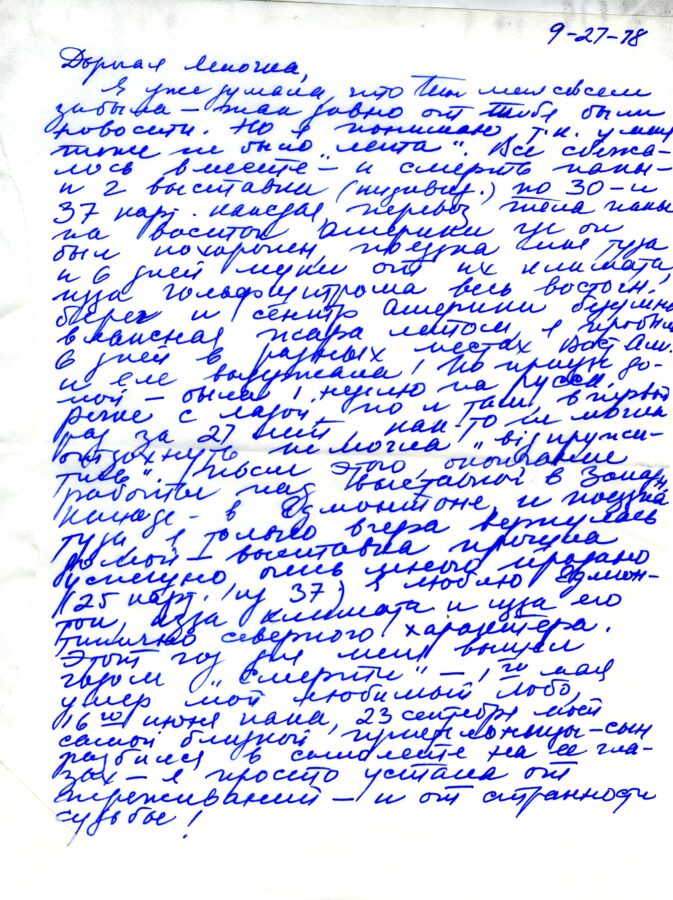 9-27-78
Дорогая Леночка,
Я уже думала, что Ты меня совсем
забыла – так давно от Тебя были
новости. Но я понимаю, т.к. у меня
тоже не было „лента“. Все сбежа-
лось вместе – и смерть папы –
и 2 выставки (индивид.) по 30 – и
37 карт. каждая, перевоз тела папы
на восток Америки где он
был похоронен, поездка туда
и 6 дней муки от их климата,
изза гольфштрома весь восточ.
берег и центр Америки
влажная жара летом, я пробыла
6 дней в разных местах Вост. Ам.
и еле выдержала! По приезде до-
мой – была 1 неделю на Русск.
речке с Ладой, но и там, в первый
раз за 27 лет, как то не могла
отдохнуть, не могла „відпружи-
тись“. После этого, окончание
работы над выставкой в Запад.
Канаде – в Эдмонтоне, и поездка
туда. Я только вчера вернулась
домой – выставка прошла
успешно, очень много продано
(25 карт. из 37) Я люблю Эдмон-
тон, изза климата и изза его
типично северного характера.
Этот год для меня вышел
годом „смерти“ – 1го мая
умер мой любимый Лобо,
16го июня папа, 23 сентября моей
самой близкой приятельницы – сын
разбился в самолете на ее гла-
зах – я просто устала от
переживаний – и от странности
судьбы!